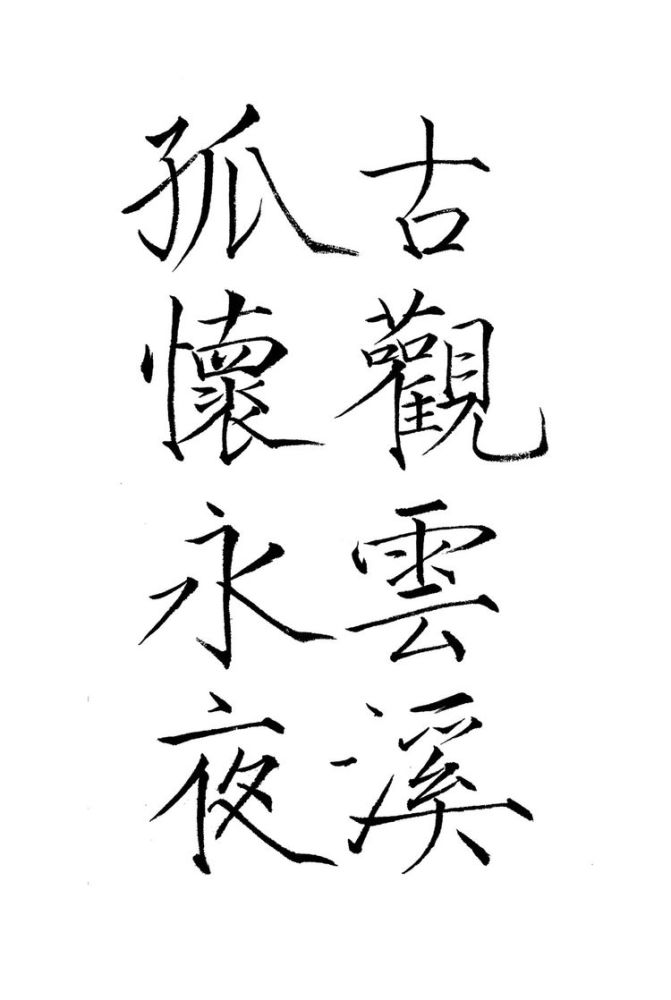 古觀雲溪
孤懷永夜